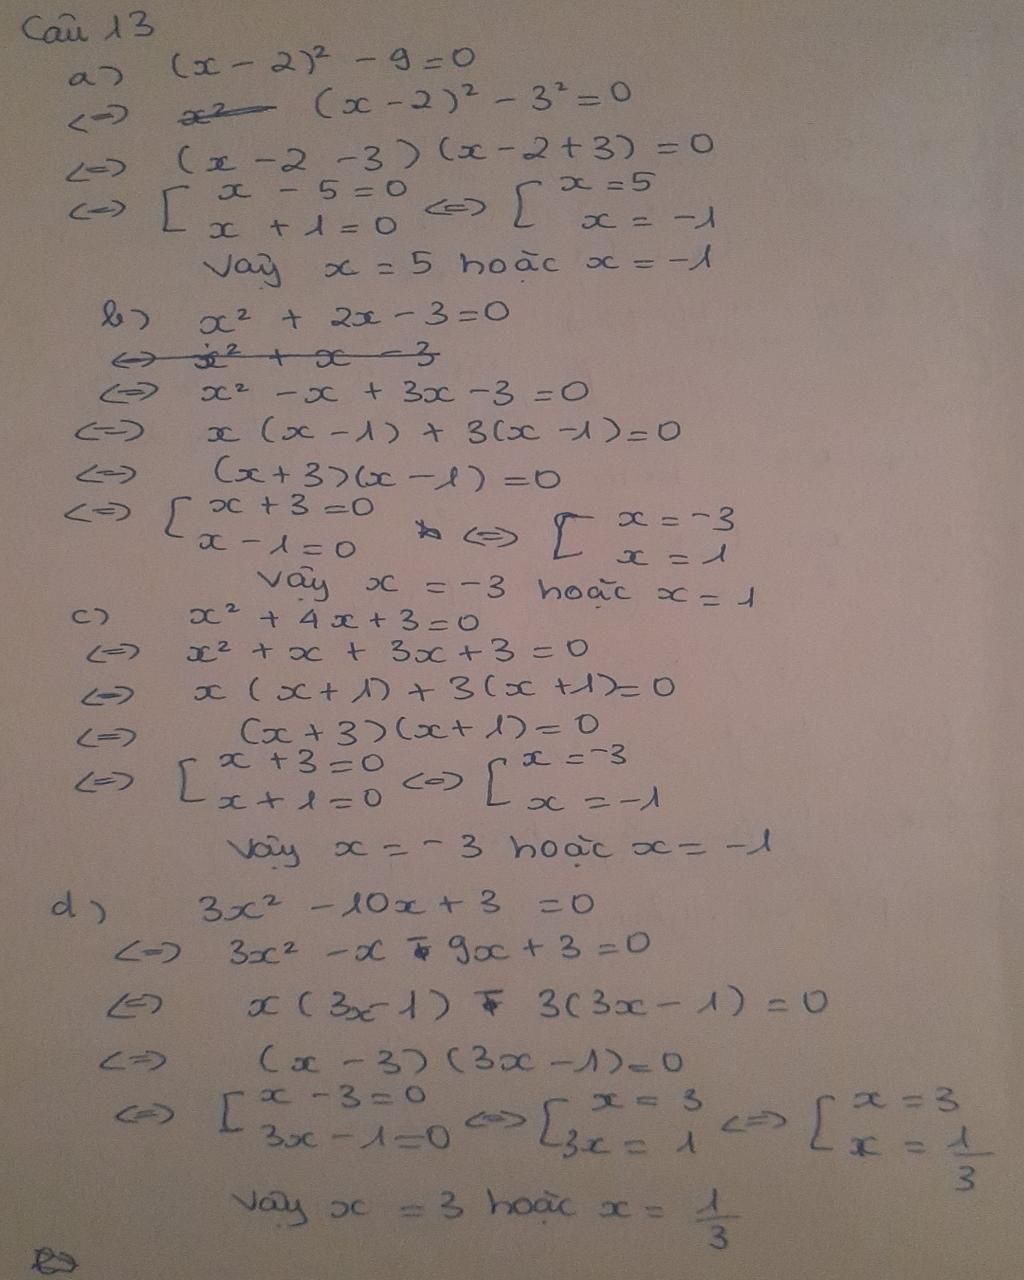 Câu 13
a) (x - 2)² - 9 = 0
<=> x² (x - 2)² - 3² = 0
<=> (x - 2 - 3)(x - 2 + 3) = 0
<=> [ x - 5 = 0 <=> [ x = 5
x + 1 = 0 x = -1
Vậy x = 5 hoặc x = -1
b) x² + 2x - 3 = 0
<=> x² + x - 3
<=> x² - x + 3x - 3 = 0
<=> x (x - 1) + 3(x - 1) = 0
<=> (x + 3)(x - 1) = 0
<=> [ x + 3 = 0 <=> [ x = -3
x - 1 = 0 x = 1
Vậy x = -3 hoặc x = 1
c) x² + 4x + 3 = 0
<=> x² + x + 3x + 3 = 0
<=> x (x + 1) + 3(x + 1) = 0
<=> (x + 3)(x + 1) = 0
<=> [ x + 3 = 0 <=> [ x = -3
x + 1 = 0 x = -1
Vậy x = -3 hoặc x = -1
d) 3x² - 10x + 3 = 0
<=> 3x² - x - 9x + 3 = 0
<=> x (3x - 1) - 3(3x - 1) = 0
<=> (x - 3)(3x - 1) = 0
<=> [ x - 3 = 0 <=> [ x = 3 <=> [ x = 3
3x - 1 = 0 3x = 1 x = 1/3
Vậy x = 3 hoặc x = 1/3